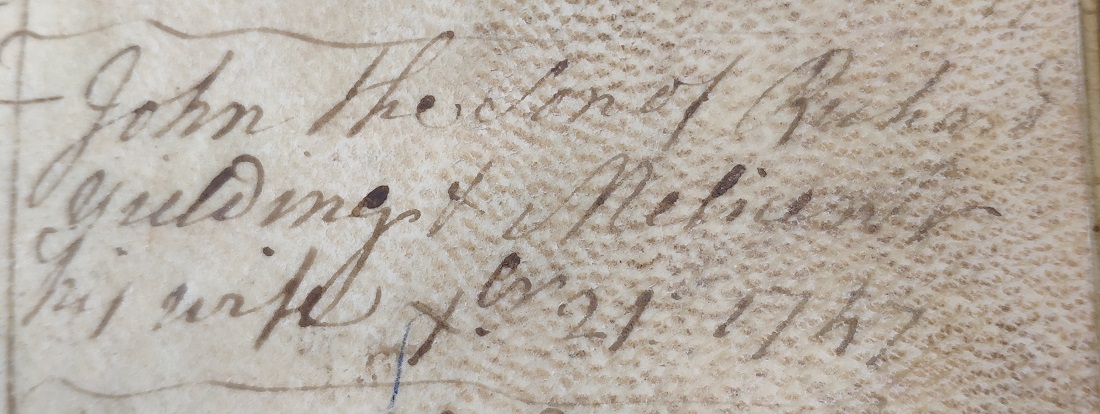 John the Son of Richard
Gulding & Melicent
his wife xber 21st 1747